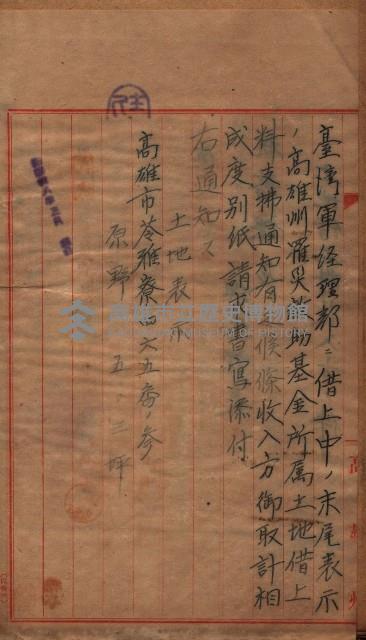 臺灣軍経理部ニ借上中ノ末尾表示
ノ高雄州罹災救助基金所属土地借上
料支拂通知有之候條收入方御取計相
成度別紙請求書寫添付
右通知ス
土地表示
高雄市苓雅寮四六五番ノ参
原野 五.三坪
高雄市立歷史博物館
高雄州